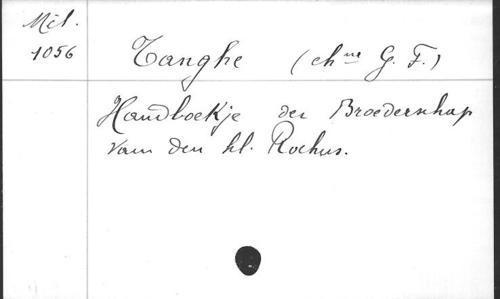 Mél.
1056
Tanghe (chne G. F.)
Handboekje der Broederschap
van den hl. Rochus.